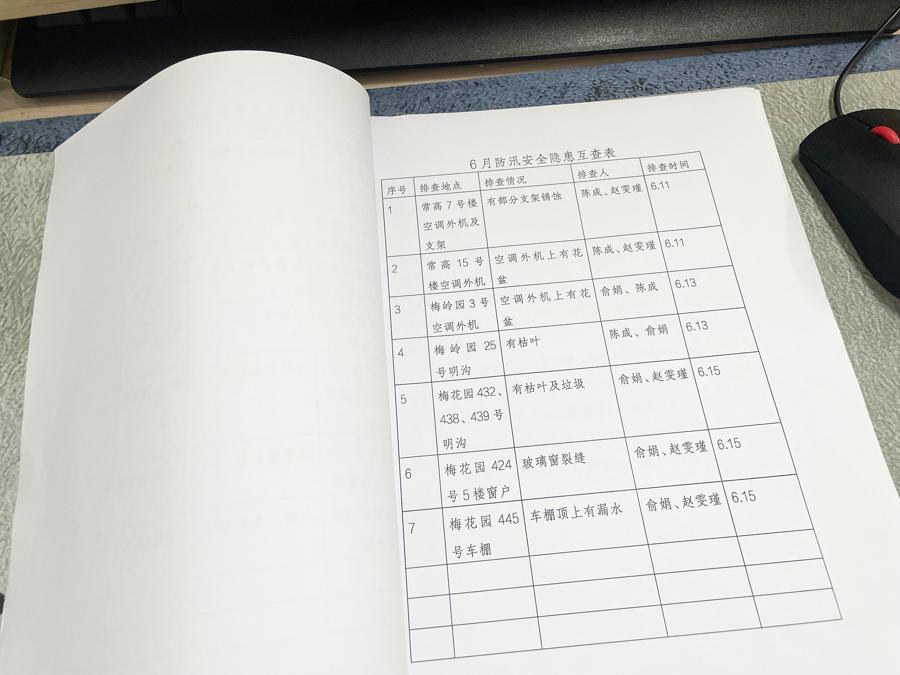 6月防汛安全隐患互查表
序号 排查地点 排查情况 排查人 排查时间
1 常高7号楼 有部分支架锈蚀 陈成、赵雯瑾 6.11
空调外机及
支架
2 常高15号 空调外机上有花 陈成、赵雯瑾 6.11
楼空调外机 盆
3 梅岭园3号 空调外机上有花 俞娟、陈成 6.13
空调外机 盆
4 梅岭园25 有枯叶 陈成、俞娟 6.13
号明沟
5 梅花园432、 有枯叶及垃圾 俞娟、赵雯瑾 6.15
438、439号
明沟
6 梅花园424 玻璃窗裂缝 俞娟、赵雯瑾 6.15
号5楼窗户
7 梅花园445 车棚顶上有漏水 俞娟、赵雯瑾 6.15
号车棚